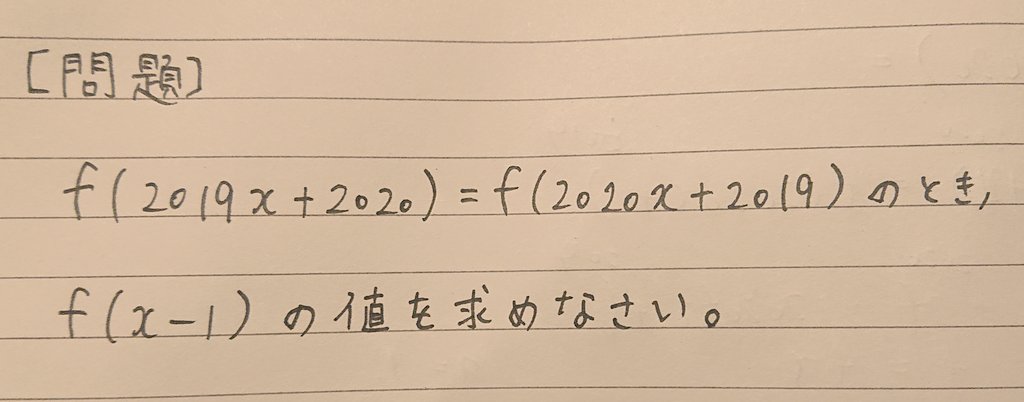 [問題]
f(2019x+2020)=f(2020x+2019)のとき,
f(x-1)の値を求めなさい。